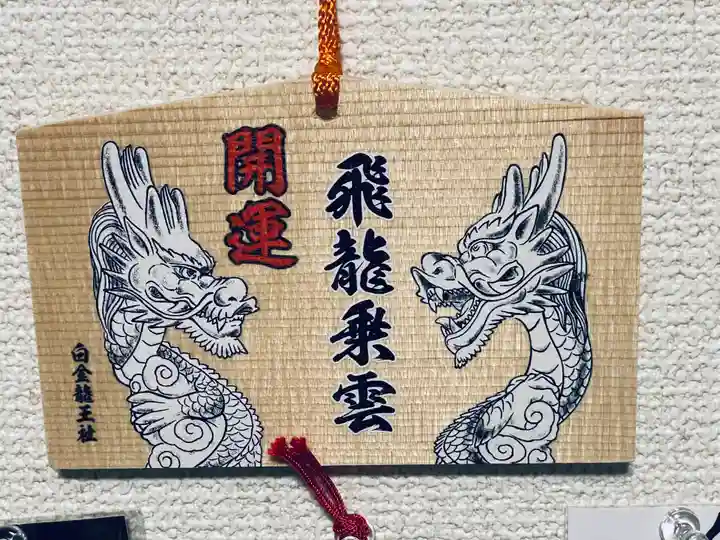 飛龍乗雲
開運
白金龍王社